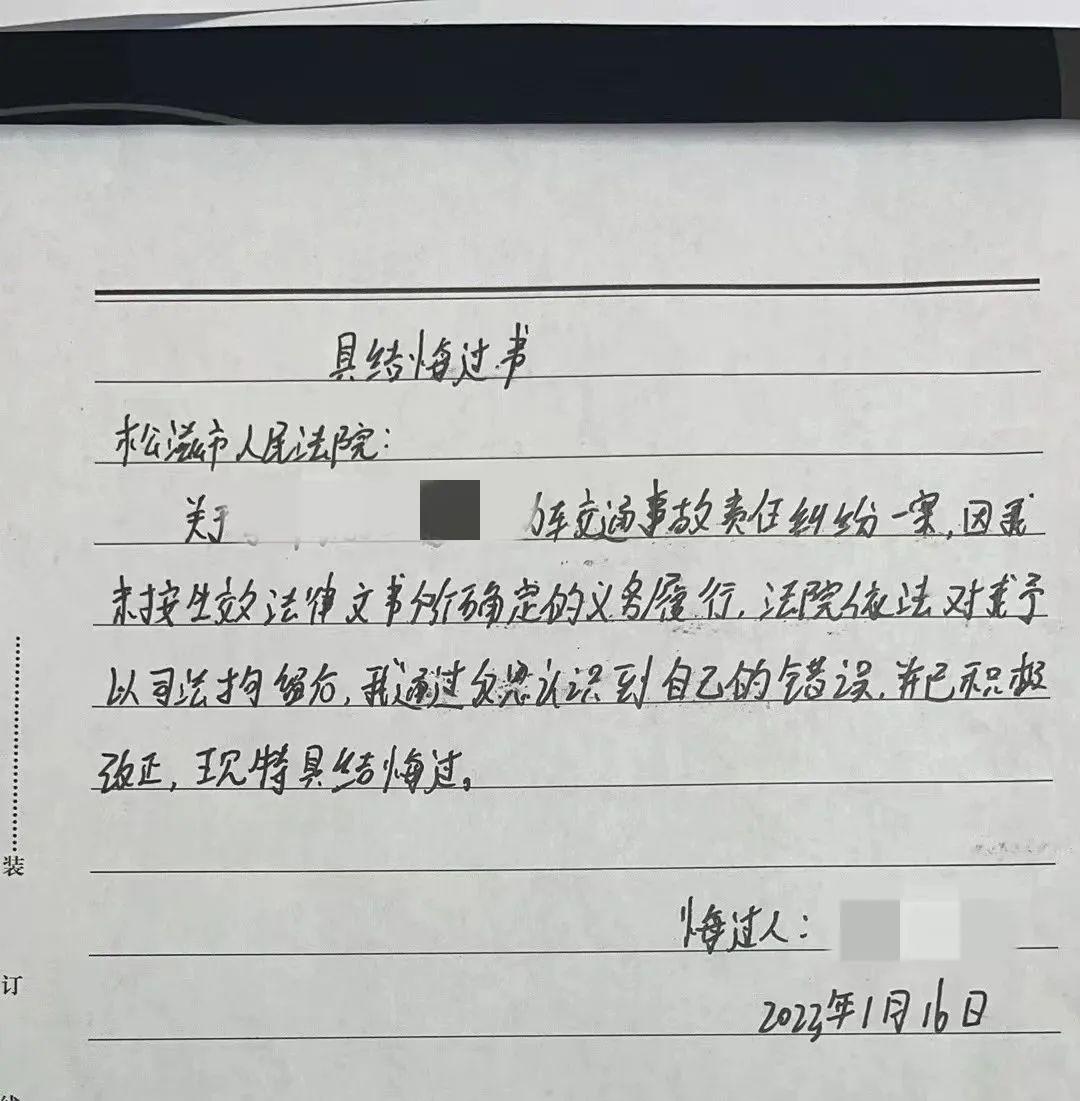 具结悔过书
松滋市人民法院:
关于 车交通事故责任纠纷一案,因我
未按生效法律文书所确定的义务履行,法院依法对我予
以司法拘留后,我通过反思认识到自己的错误,并已积极
改正,现特具结悔过。
悔过人:
2023年1月16日
装
订
线